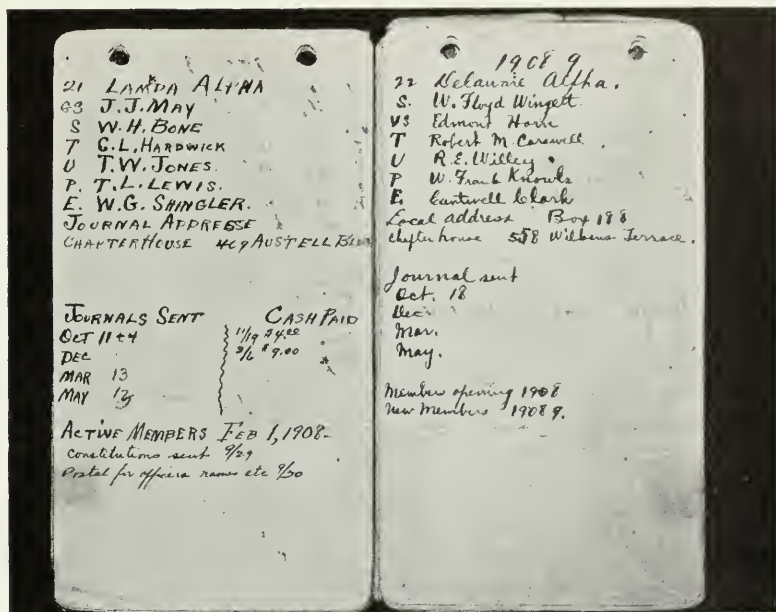 21 LAMDA ALPHA
G3 J.J. MAY
S W.H. BONE
T G.L. HARDWICK
U T.W. JONES.
P. T.L. LEWIS.
E. W.G. SHINGLER.
JOURNAL ADDRESSE
CHAPTER HOUSE 409 AUSTELL
JOURNALS SENT CASH PAID
OCT 11+4 11/19 $4.00
DEC 3/6 $9.00
MAR 13
MAY 13
ACTIVE MEMBERS FEB 1, 1908-
Constitutions sent 9/29
Postal for officers names etc 9/30
1908 9
22 Delaware Alpha.
S. W. Floyd Wingett
VS Edmont Horn
T Robert M. Carswell
U R.E. Willey.
P W. Frank Knowls
E. Cantwell Clark
Local address Box 188
Chapter house 558 Wilbens Terrace.
Journal sent
Oct. 18
Dec
Mar.
May.
Member opening 1908
New Members 1908 9.